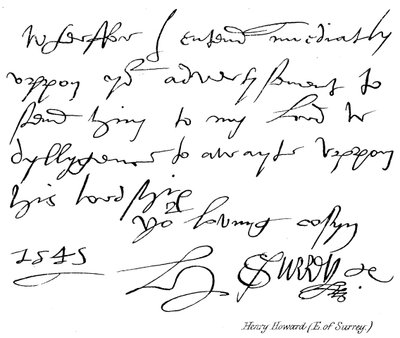 Wherfor I entend immediatly
vppon yor advertisement to
send him to my lord wt
dyllygence to awayte vppon
his lordship
yor loving cosyn
1545 H SURREY
Henry Howard (E. of Surrey.)